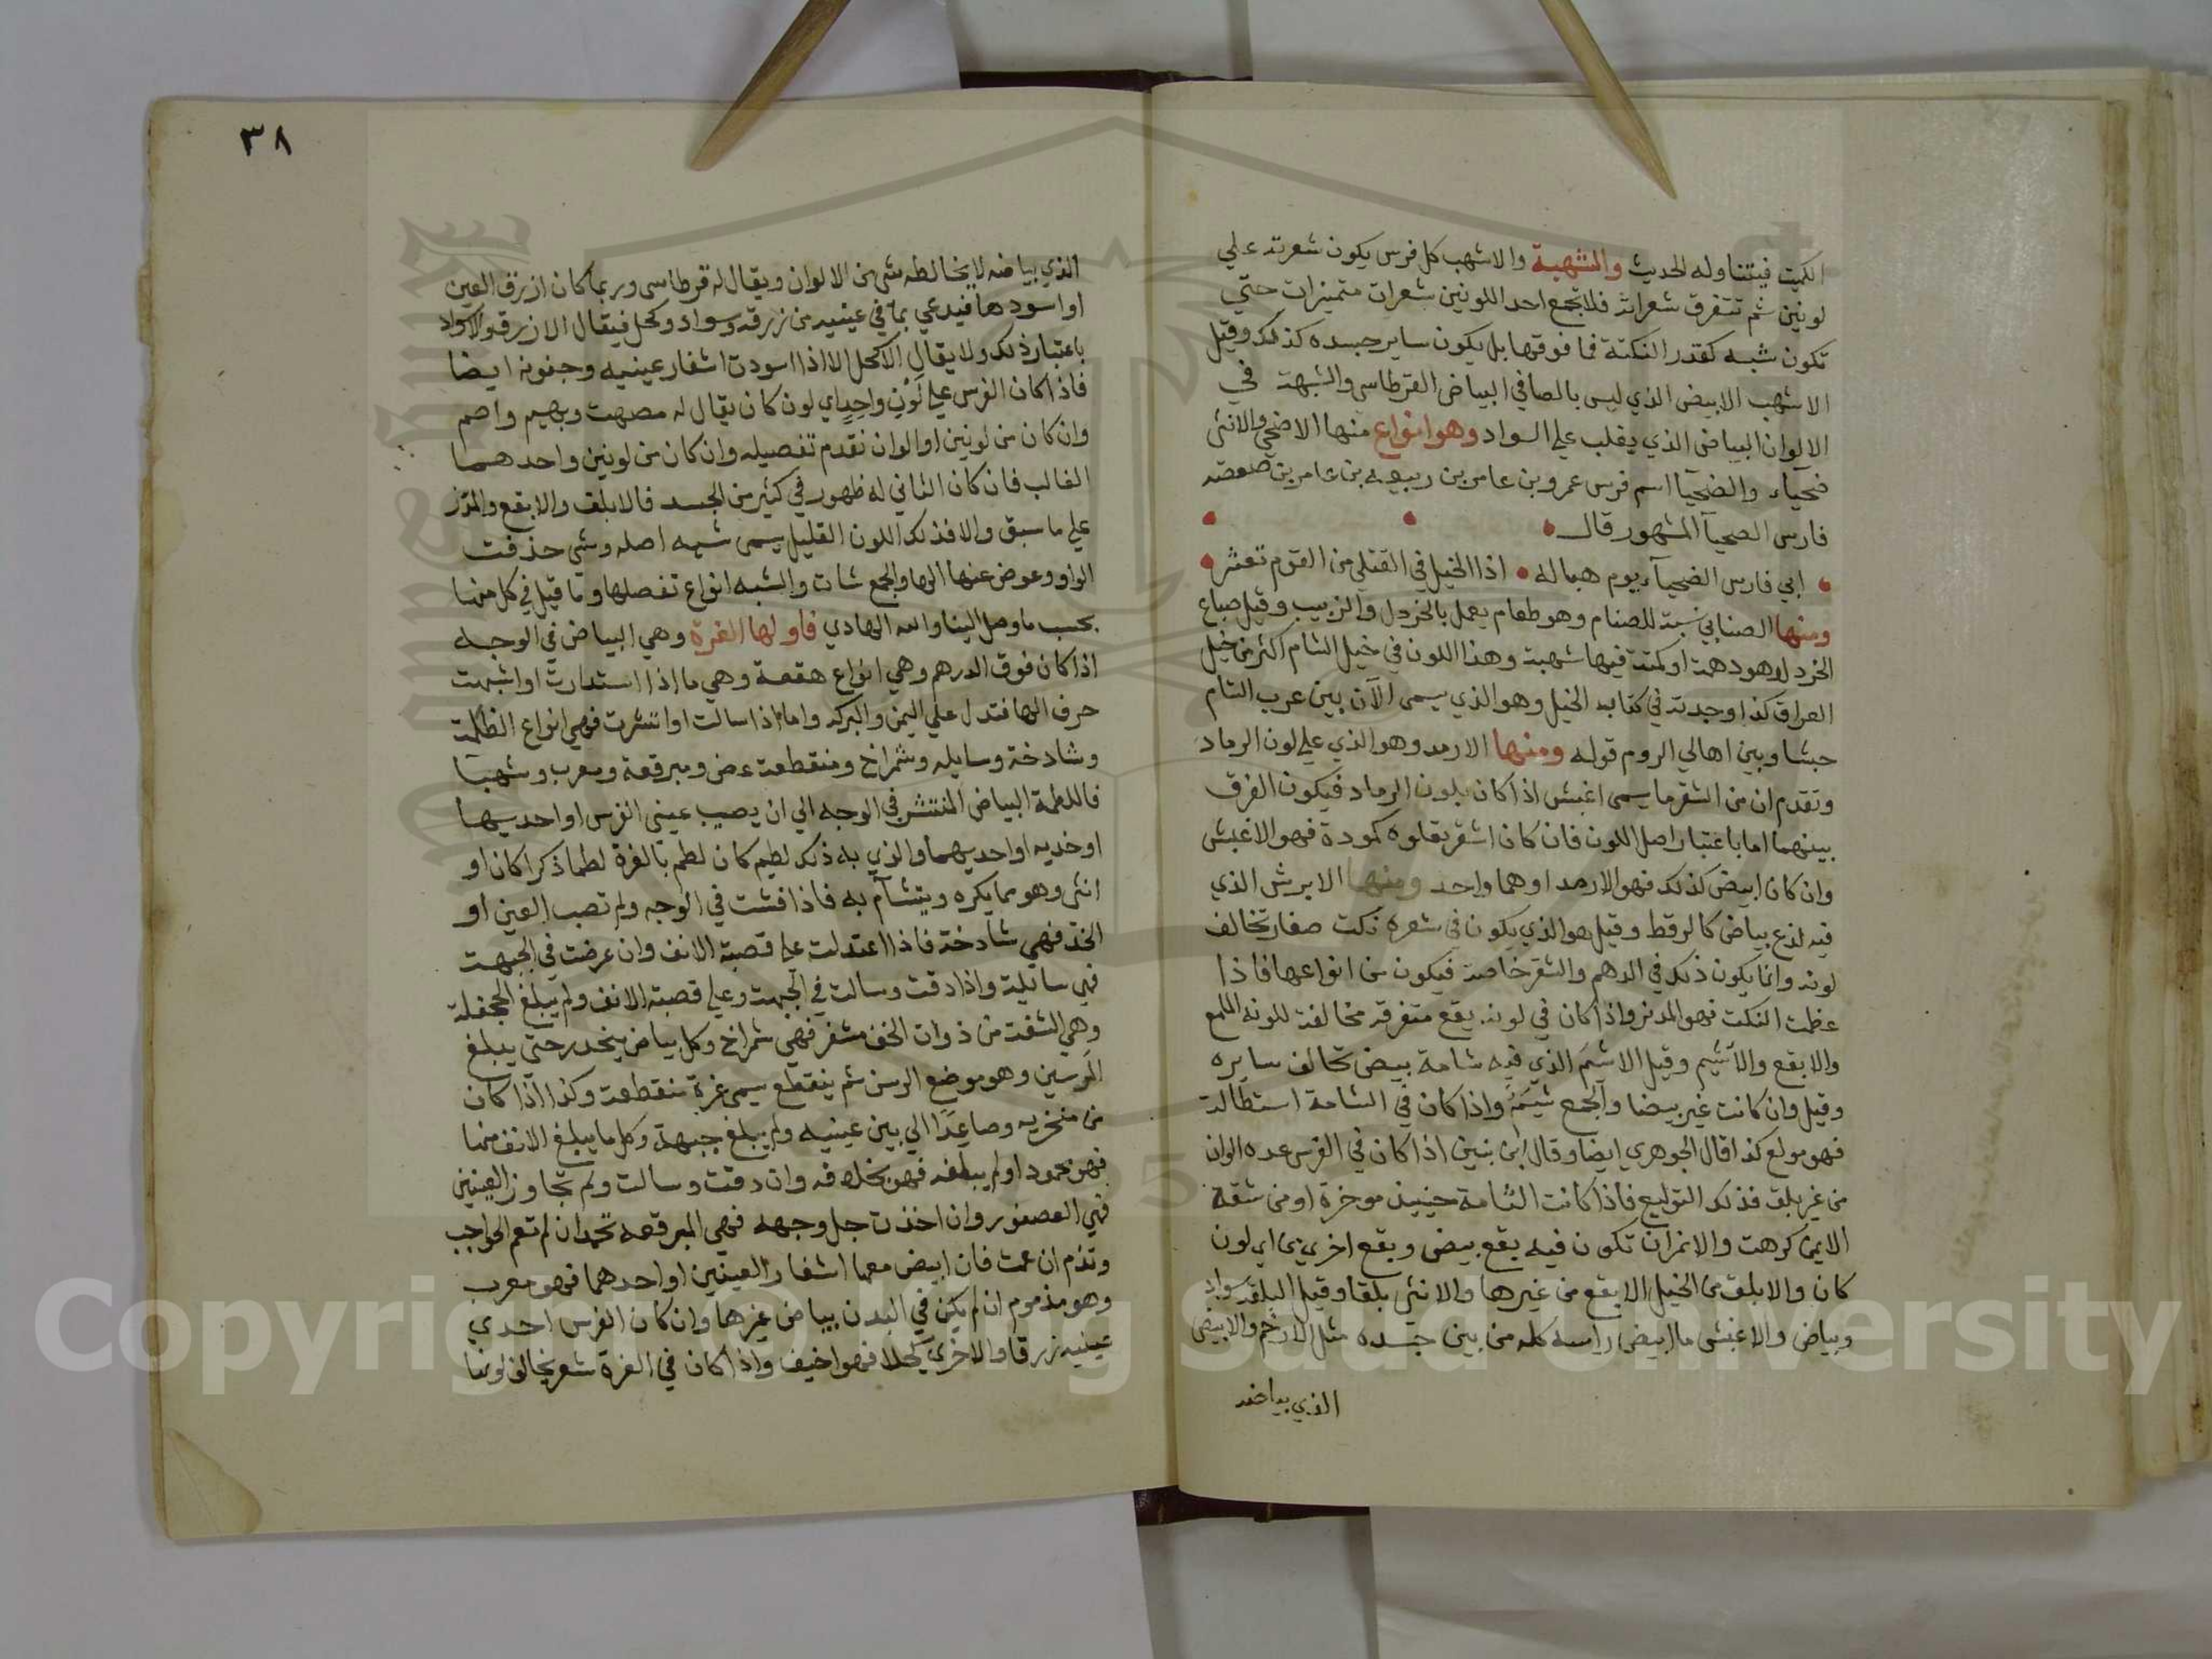 الكميت فيتناوله الحديث والشهبة والاشهب كل فرس يكون شعرته علي
لونين ثم تتفرق شعراته فلا تجمع احد اللونين شعرات متميزات حتي
تكون شبه كقدر النكتة فما فوقها بل يكون ساير جسده كذلك وقيل
الاشهب الابيض الذي ليس بالصافي البياض القرطاسي والشبهة في
الالوان البياض الذي يغلب علي السواد وهو انواع منها الاضحي والانثى
ضحياء والضحيآ اسم فرس عمرو بن عامر بن ربيعه بن عامر بن صعصه
فارس الصحيآ المشهور قال
ابي فارس الضحيآء يوم هباله اذا الخيل في القتلي من القوم تعثر
ومنها الصنابي نسبة للصناب وهو طعام يعمل بالخردل والزبيب وقيل صباغ
الخردل وهو دهمة او كمتة فيها شهبة وهذا اللون في خيل الشام اكثر من خيل
العراق كذا وجدته في كتاب الخيل وهو الذي يسمى الآن بين عرب الشام
حبشا وبين اهالي الروم قوله ومنها الارمد وهو الذي علي لون الرماد
وتقدم ان من الشقر ما يسمى اغبش اذا كان بلون الرماد فيكون الفرق
بينهما اما باعتبار اصل اللون فان كان اشقر يعلوه كمودة فهو الاغبش
وان كان ابيض كذلك فهو الارمد او هما واحد ومنها الابرش الذي
فيه لذع بياض كالرقط وقيل هو الذي يكون في شعره نكت صغار تخالف
لونه وانما يكون ذلك في الدهم والشقر خاصة فيكون من انواعها فاذا
عظمت النكت فهو المدنر واذا كان في لونه بقع متفرقه مخالفة للونه الملمع
والابقع والاشيم وقيل الاشيم الذي فيه شامة بيض تخالف سايره
وقيل وان كانت غير بيضا والجمع شيم واذا كان في الشامة استطالة
فهو مولع كذا قال الجوهري ايضا وقال ابن بنين اذا كان في الفرس عده الوان
من غير بلق فذلك التوليع فاذا كانت الشامة حينيذ موخرة او من شقه
الايمن كرهت والانمر ان تكون فيه بقع بيض وبقع اخرى من اي لون
كان والابلق من الخيل الابقع من غيرها والانثي بلقا وقيل البلق سواد
وبياض والاغشى ما ابيض راسه كله من بين جسده مثل الارخم والابيض
الذي بياضه
٣٨
الذي بياضه لا يخالطه شي من الالوان ويقال له قرطاسي وربما كان ازرق العين
او اسودها فيدعي بما في عينيه من زرقه وسواد وكحل فيقال الازرق والاسود
باعتبار ذلك ولا يقال الاكحل الا اذا اسودت اشفار عينيه وجفونه ايضا
فاذا كان الفرس علي لون واحد اي لون كان يقال له مصمت وبهيم واصم
وان كان من لونين او الوان تقدم تفصيله وان كان من لونين واحدهما
الغالب فان كان الثاني له ظهور في كثير من الجسد فالابلق والابقع والمدنر
علي ما سبق والا فذلك اللون القليل يسمى شيه اصله وشى حذفت
الواو وعوض عنها الها والجمع شات والشيه انواع تفصلها وما قيل في كل منها
بحسب ما وصل الينا والله الهادي فاولها الغرة وهي البياض في الوجه
اذا كان فوق الدرهم وهي انواع هقعة وهي ما اذا استدارت او اشبهت
حرف الها فتدل علي اليمن والبركه واما اذا سالت او انتشرت فهي انواع
وشادخة وسايله وشمراخ ومنقطعة ومبرقعة ومعرب وشهبا
فاللطمة البياض المنتشر في الوجه الي ان يصيب عيني الفرس او احديهما
او خديه او احديهما والذي به ذلك لطيم كان لطم بالغرة لطما ذكرا كان او
انثى وهو مما يكره ويتشآم به فاذا فشت في الوجه ولم تصب العين او
الخد فهي شادخة فاذا اعتدلت علي قصبة الانف وان عرضت في الجبهة
فهي سائلة واذا دقت وسالت في الجبهة وعلي قصبة الانف ولم يبلغ الجحفلة
وهي الشفة من ذوات الخف مشفر فهي شمراخ وكل بياض ينحدر حتي يبلغ
المرسين وهو موضع الرسن ثم ينقطع يسمى غرة منقطعة وكذا اذا كان
من منخريه وصاعدا الي بين عينيه ولم يبلغ جبهة وكل ما يبلغ الانف منها
فهو محمود او لم يبلغه فهو بخلافه وان دقت وسالت ولم تجاوز العينين
فهي العصفور وان اخذت جل وجهه فهي المبرقعه تحمد ان لم تعم الحواجب
وتذم ان عمت فان ابيض معها اشفار العينين او احدهما فهو معرب
وهو مذموم ان لم يكن في البدن بياض غيرها وان كان الفرس احدي
عينيه زرقا والاخرى كحلا فهو اخيف واذا كان في الغرة شعر يخالف لونها
Copyright © King Saud University